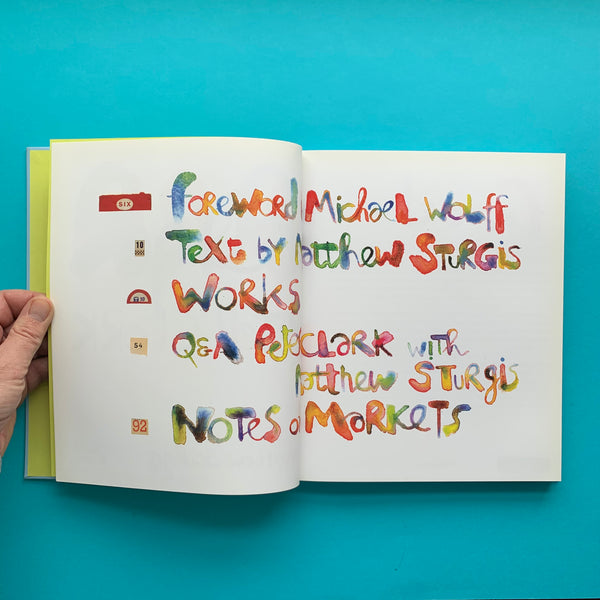 SIX Foreword Michael Wolff
10 Text by Matthew Sturgis
Works
54 Q&A Peter Clark with
Matthew Sturgis
92 Notes on Markets